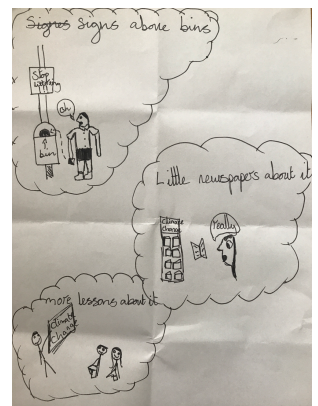 Signes signs above bins
Stop
littering
oh
bin
Little newspapers about it
climate
change
really
more lessons about it
Climate
Change